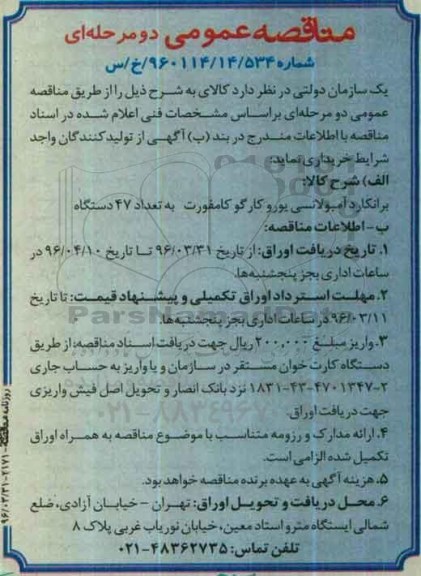 مناقصه عمومی دو مرحله‌ای
شماره ۹۶۰۱۱۴/۱۴/۵۳۴/خ/س
یک سازمان دولتی در نظر دارد کالای به شرح ذیل را از طریق مناقصه
عمومی دو مرحله‌ای براساس مشخصات فنی اعلام شده در اسناد
مناقصه با اطلاعات مندرج در بند (ب) آگهی از تولیدکنندگان واجد
شرایط خریداری نماید:
الف) شرح کالا:
برانکارد آمبولانسی یورو کارگو کامفورت به تعداد ۴۷ دستگاه
ب- اطلاعات مناقصه:
۱. تاریخ دریافت اوراق: از تاریخ ۹۶/۰۳/۳۱ تا تاریخ ۹۶/۰۴/۱۰ در
ساعات اداری بجز پنجشنبه‌ها.
۲. مهلت استرداد اوراق تکمیلی و پیشنهاد قیمت: تا تاریخ
۹۶/۰۳/۱۱ در ساعات اداری بجز پنجشنبه‌ها.
۳. واریز مبلغ ۲۰۰,۰۰۰ ریال جهت دریافت اسناد مناقصه: از طریق
دستگاه کارت خوان مستقر در سازمان و یا واریز به حساب جاری
۱۸۳۱-۴۳-۴۷۰۱۳۴۷-۲ نزد بانک انصار و تحویل اصل فیش واریزی
جهت دریافت اوراق.
۴. ارائه مدارک و رزومه متناسب با موضوع مناقصه به همراه اوراق
تکمیل شده الزامی است.
۵. هزینه آگهی به عهده برنده مناقصه خواهد بود.
۶. محل دریافت و تحویل اوراق: تهران - خیابان آزادی، ضلع
شمالی ایستگاه مترو استاد معین، خیابان نوریاب غربی پلاک ۸
تلفن تماس: ۴۸۳۶۲۷۳۵-۰۲۱
ParsNamadData
۰۲۱-۸۸۳۴۹۶۷۰
روزنامه مناقصه ۲۱۷۱-۹۶/۰۳/۳۱